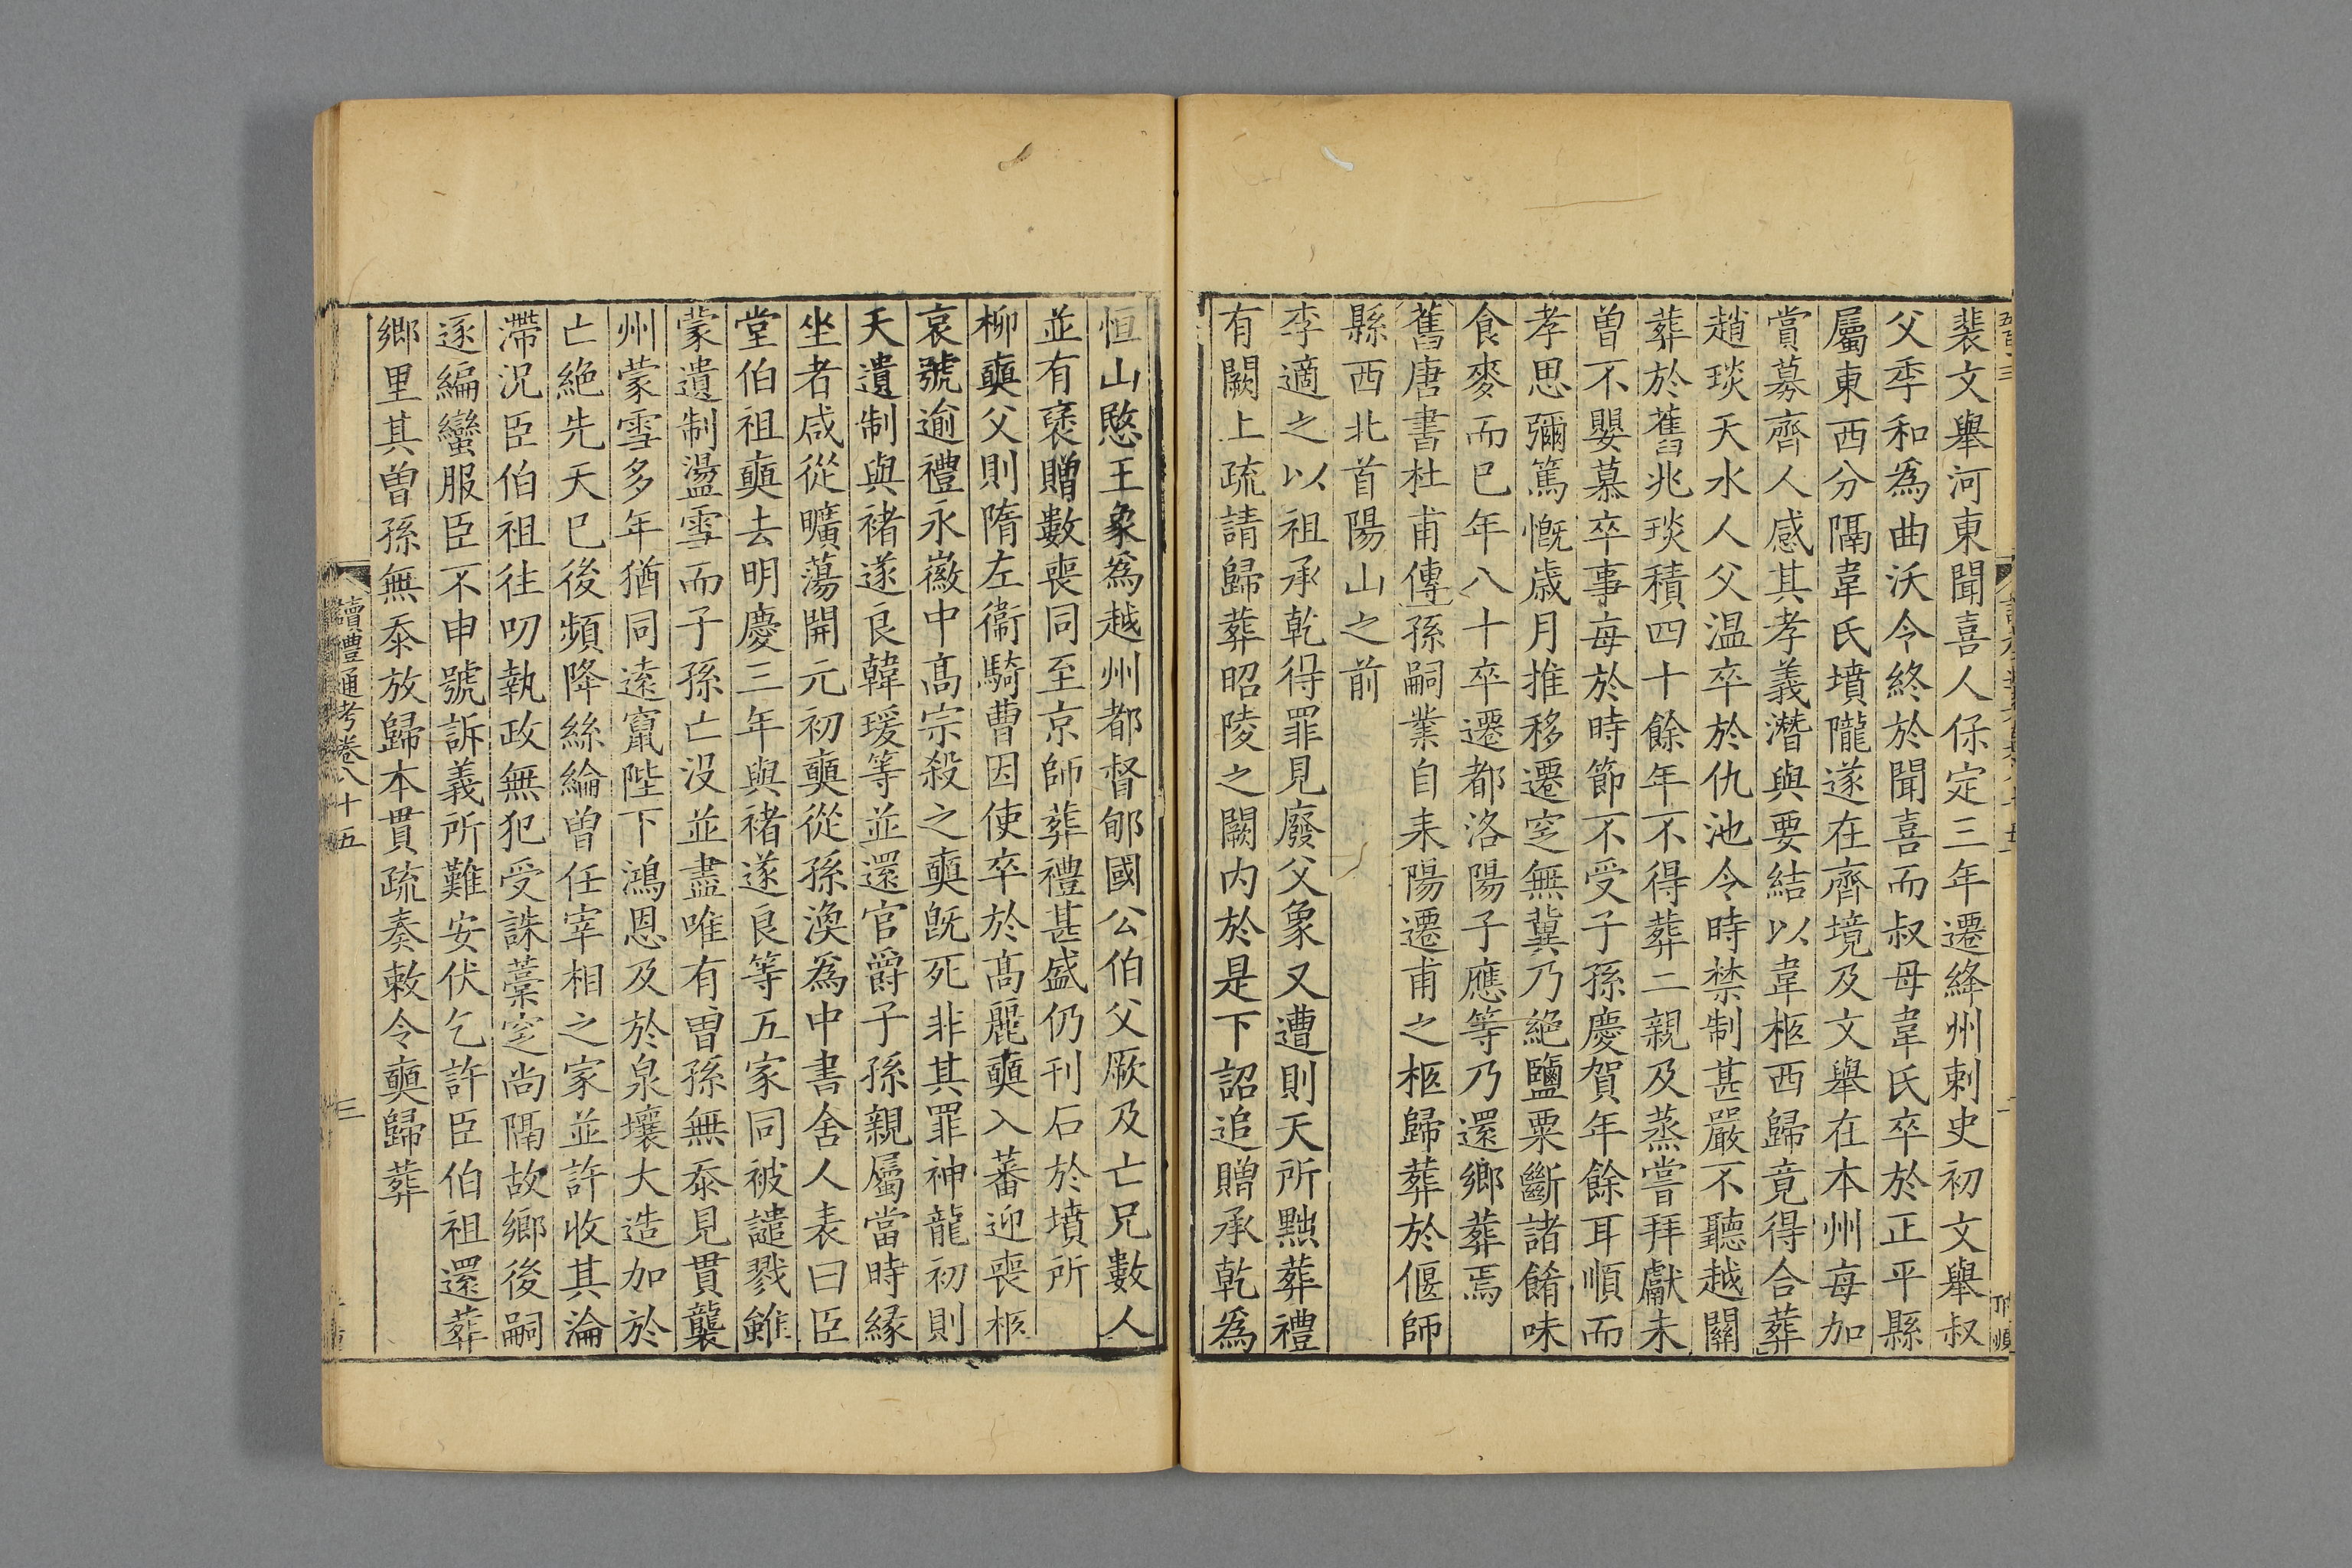 裴文舉河東聞喜人保定三年遷絳州刺史初文舉叔
父季和為曲沃令終於聞喜而叔母韋氏卒於正平縣
屬東西分隔韋氏墳隴遂在齊境及文舉在本州每加
賞募齊人感其孝義潛與要結以韋柩西歸竟得合葬
趙琰天水人父温卒於仇池令時禁制甚嚴不聽越關
葬於舊兆琰積四十餘年不得葬二親及蒸嘗拜獻未
曾不嬰慕卒事每於時節不受子孫慶賀年餘耳順而
孝思彌篤慨歲月推移遷窆無冀乃絕鹽粟斷諸餚味
食麥而已年八十卒遷都洛陽子應等乃還鄉葬焉
舊唐書杜甫傳孫嗣業自耒陽遷甫之柩歸葬於偃師
縣西北首陽山之前
李適之以祖承乾得罪見廢父象又遭則天所黜葬禮
有闕上疏請歸葬昭陵之闕内於是下詔追贈承乾為
恒山愍王象為越州都督郇國公伯父厥及亡兄數人
並有褒贈數喪同至京師葬禮甚盛仍刊石於墳所
柳奭父則隋左衞騎曹因使卒於髙麗奭入蕃迎喪柩
哀號逾禮永徽中髙宗殺之奭既死非其罪神龍初則
天遺制與褚遂良韓瑗等並還官爵子孫親屬當時緣
坐者咸從曠蕩開元初奭從孫渙為中書舍人表曰臣
堂伯祖奭去明慶三年與褚遂良等五家同被譴戮雖
蒙遺制盪雪而子孫亡沒並盡唯有曾孫無忝見貫龔
州蒙雪多年猶同遠竄陛下鴻恩及於泉壤大造加於
亡絕先天已後頻降絲綸曾任宰相之家並許收其淪
滯況臣伯祖往叨執政無犯受誅藁窆尚隔故鄉後嗣
逐編蠻服臣不申號訴義所難安伏乞許臣伯祖還葬
鄉里其曾孫無忝放歸本貫疏奏敕令奭歸葬
讀禮通考卷八十五 三